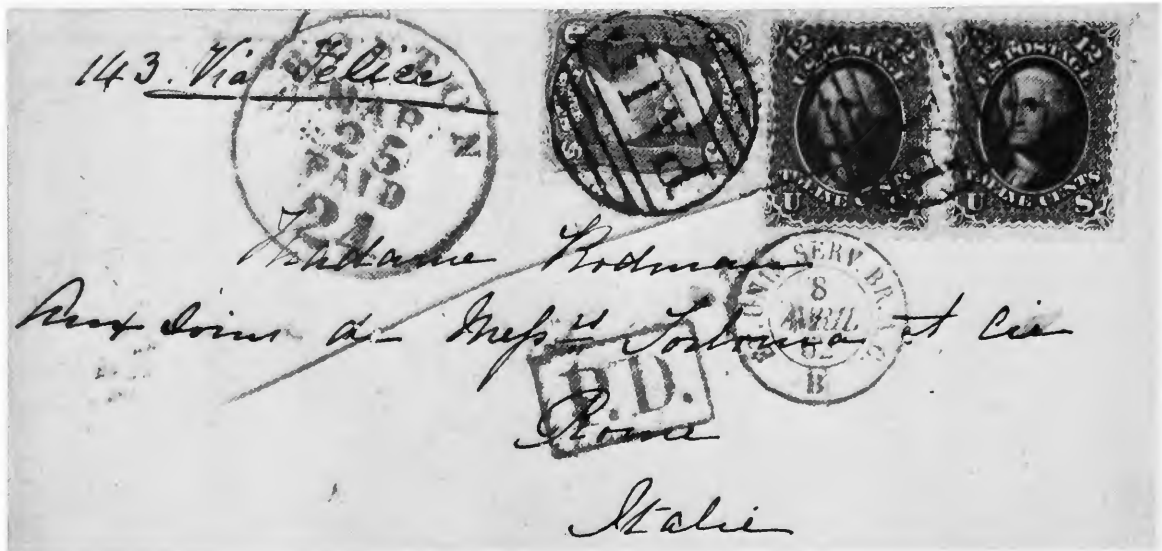 143. Via Tellier
BOSTON
MAR
25
PAID
21
PAID
12 12
U.S. POSTAGE
TWELVE CENTS
U S
12
U.S. POSTAGE
TWELVE CENTS
U S
Madame Rodman
Aux soins de Messrs et Cie
SERV. BR.
8
AVRIL
62
B
P.D.
Rome
Italie